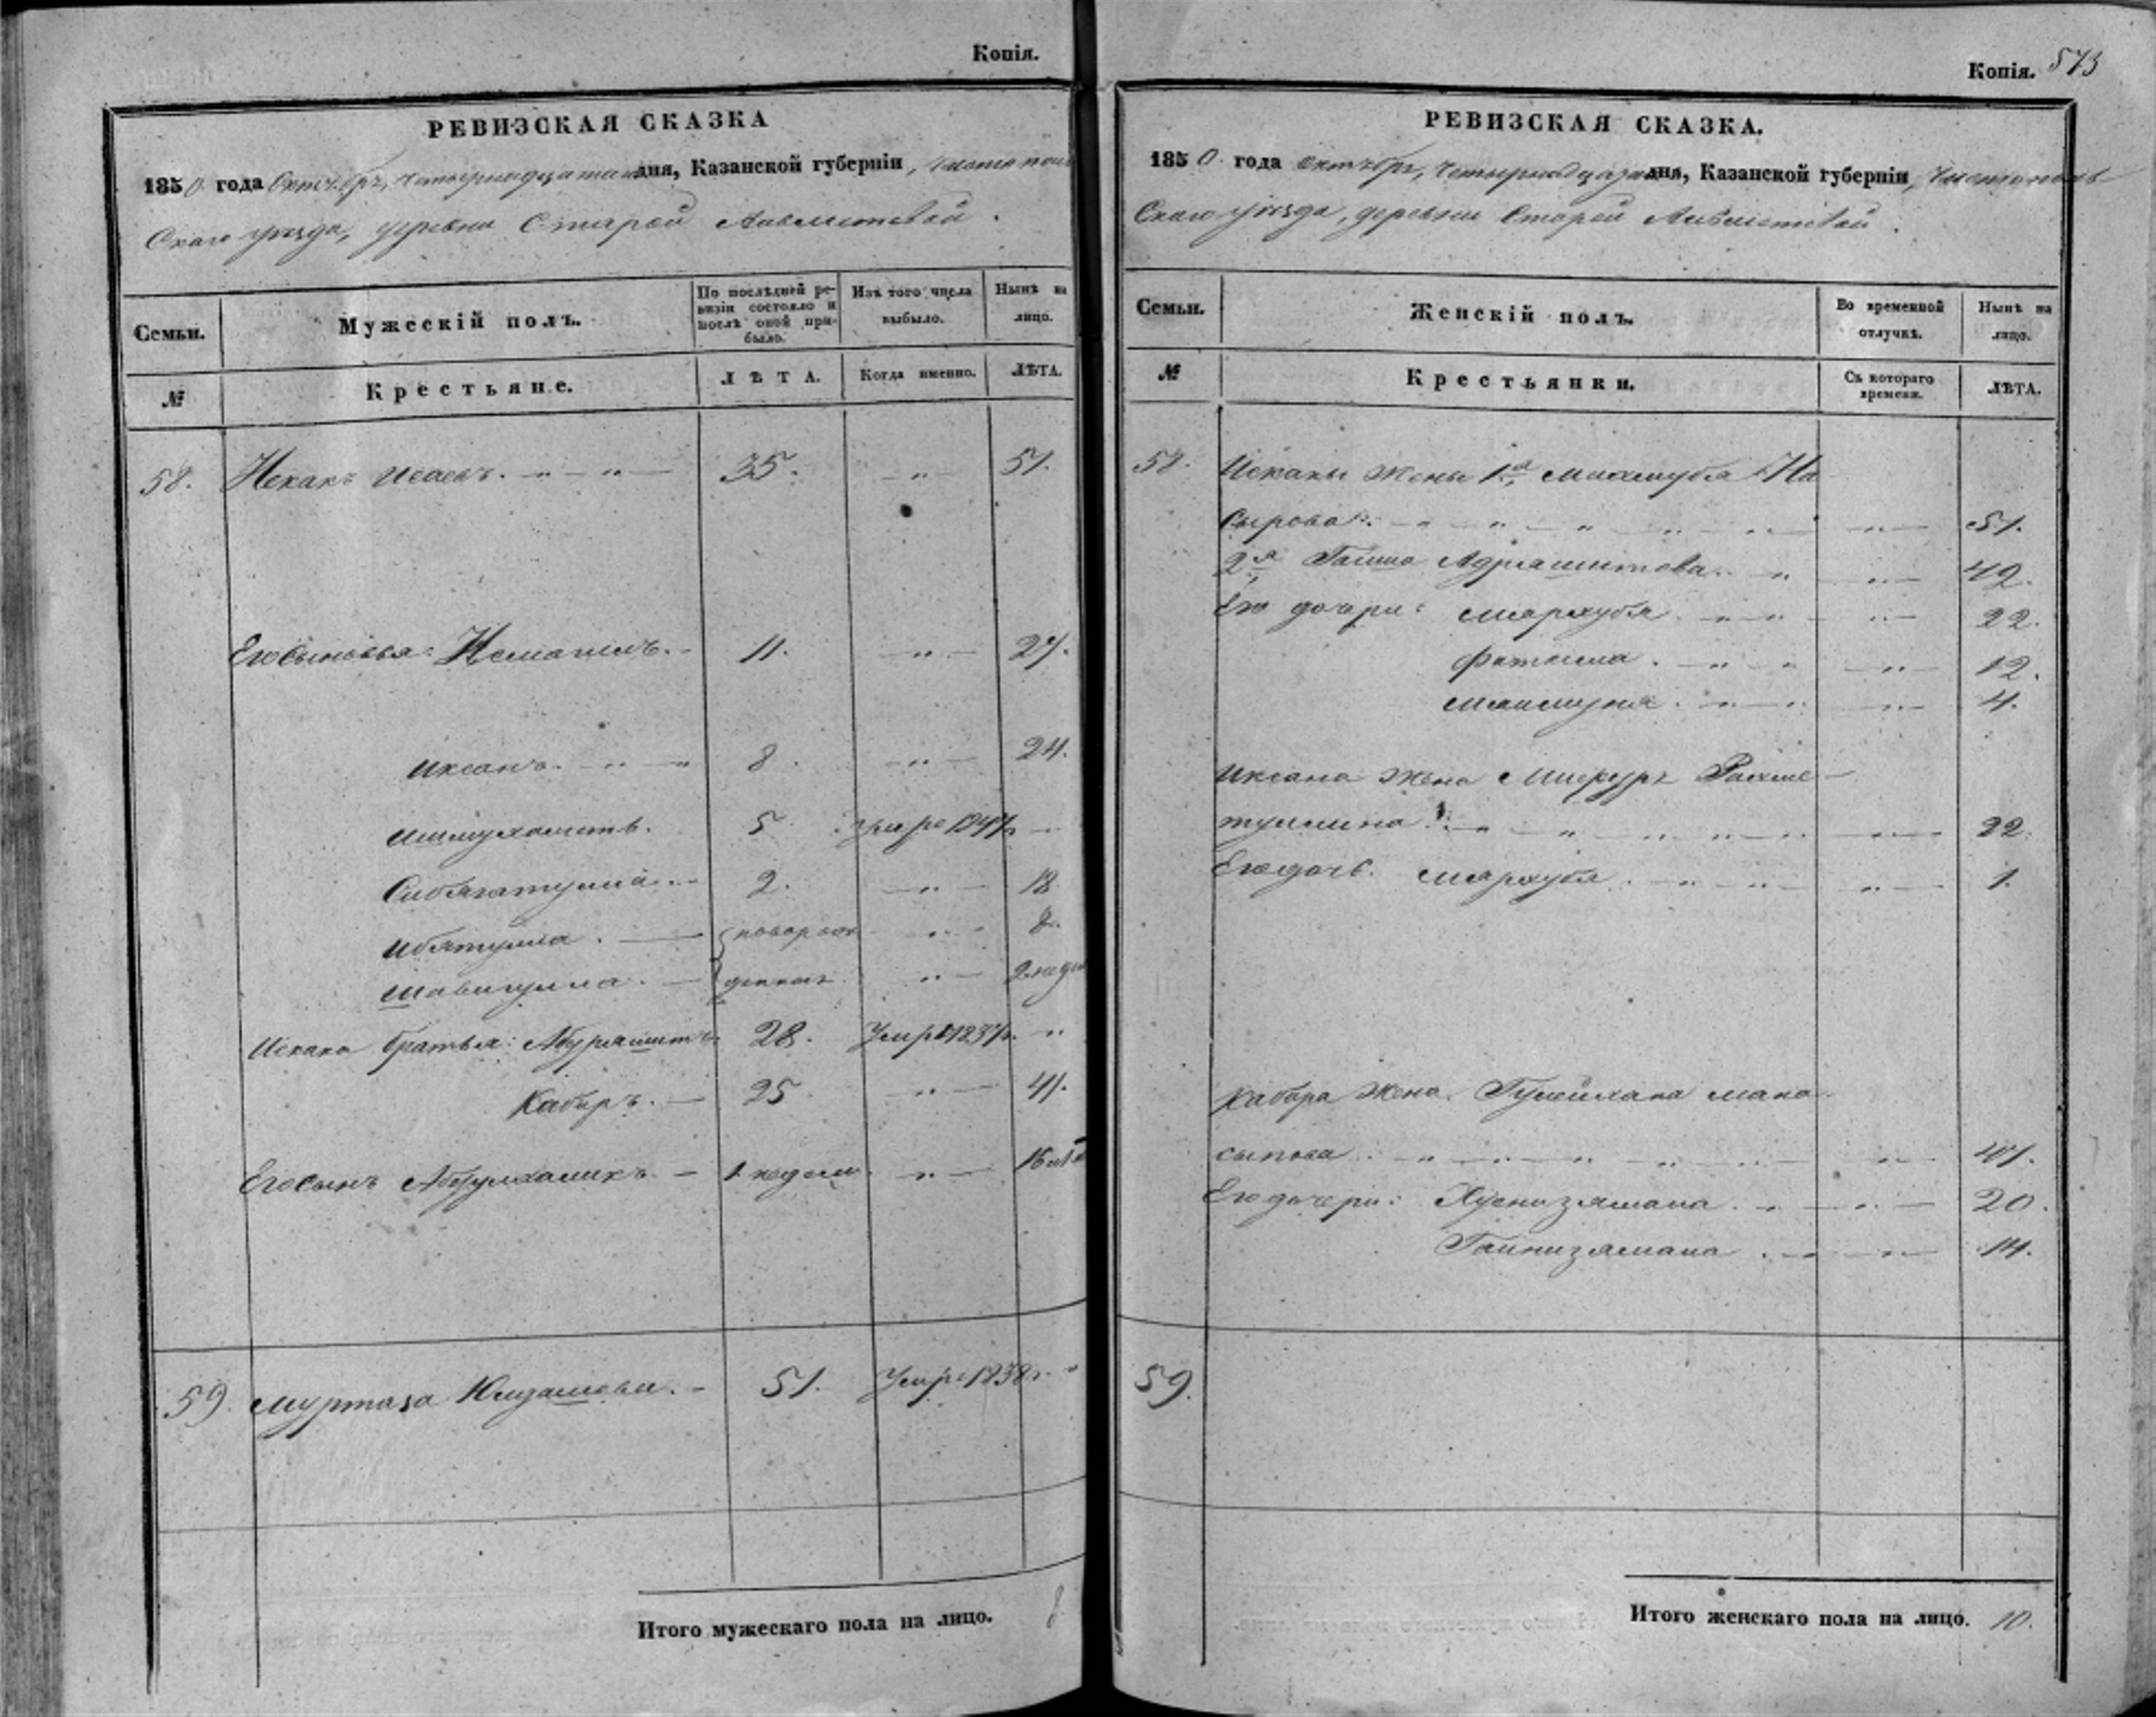 Копія.
РЕВИЗСКАЯ СКАЗКА
1850 года Октября, четырнадцатаго дня, Казанской губерніи, Чистополь
скаго уѣзда, деревни Старой
Семьи.
Мужескій полъ.
По послѣдней ре-
визіи состояло и
послѣ оной при-
было.
Изъ того числа
выбыло.
Нынѣ на
лицо.
№
Крестьяне.
ЛѢТА.
Когда именно.
ЛѢТА.
58. Искакъ Исаевъ. 35. 51.
Его сыновья: Исмагилъ. 11. 27.
Иксанъ. 8. 24.
Ишмухаметъ. 5 1847
2. 18
Ибятулла. новорож 8.
Шавигулла. денные 2 неде
Искака братья: Абдряшитъ 28. Умре 1837 г.
Кабиръ. 25 41.
Его сынъ Абдулхаликъ. 1 недели 16
59. Муртаза 51. Умре 1838 г.
Итого мужескаго пола на лицо. 8
Копія. 573
РЕВИЗСКАЯ СКАЗКА.
1850 года Октября, четырнадцата дня, Казанской губерніи, Чистополь
скаго уѣзда, деревни Старой
Семьи.
Женскій полъ.
Во временной
отлучкѣ.
Нынѣ на
лицо.
№
Крестьянки.
Съ котораго
времени.
ЛѢТА.
58. Искака жены 1я Махмубя На
сырова. 51.
2я Гайша Адряшитова. 42.
Его дочери: Мярхубя. 22.
Фатыма. 12.
Маймуня. 4.
Иксана жена Рахме
туллина. 22.
Его дочь. Мярхубя. 1.
Кабира жена. Мана
сыпова 41.
Его дочери: Хуснизямана. 20.
Гайнизямана. 14.
59.
Итого женскаго пола на лицо. 10.